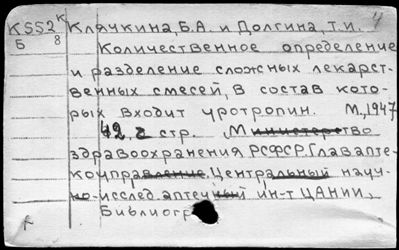 К552 К Клячкина, Б.А. и Долгина, Т.И. 4
Б 8 Количественное определение
и разделение сложных лекарст-
венных смесей, в состав кото-
рых входит уротропин. М., 1947
42 с стр. Министерство
здравоохранения РСФСР. Главапте-
коуправление. Центральный науч-
но-исслед. аптечный ин-т ЦАНИИ,
Библиогр